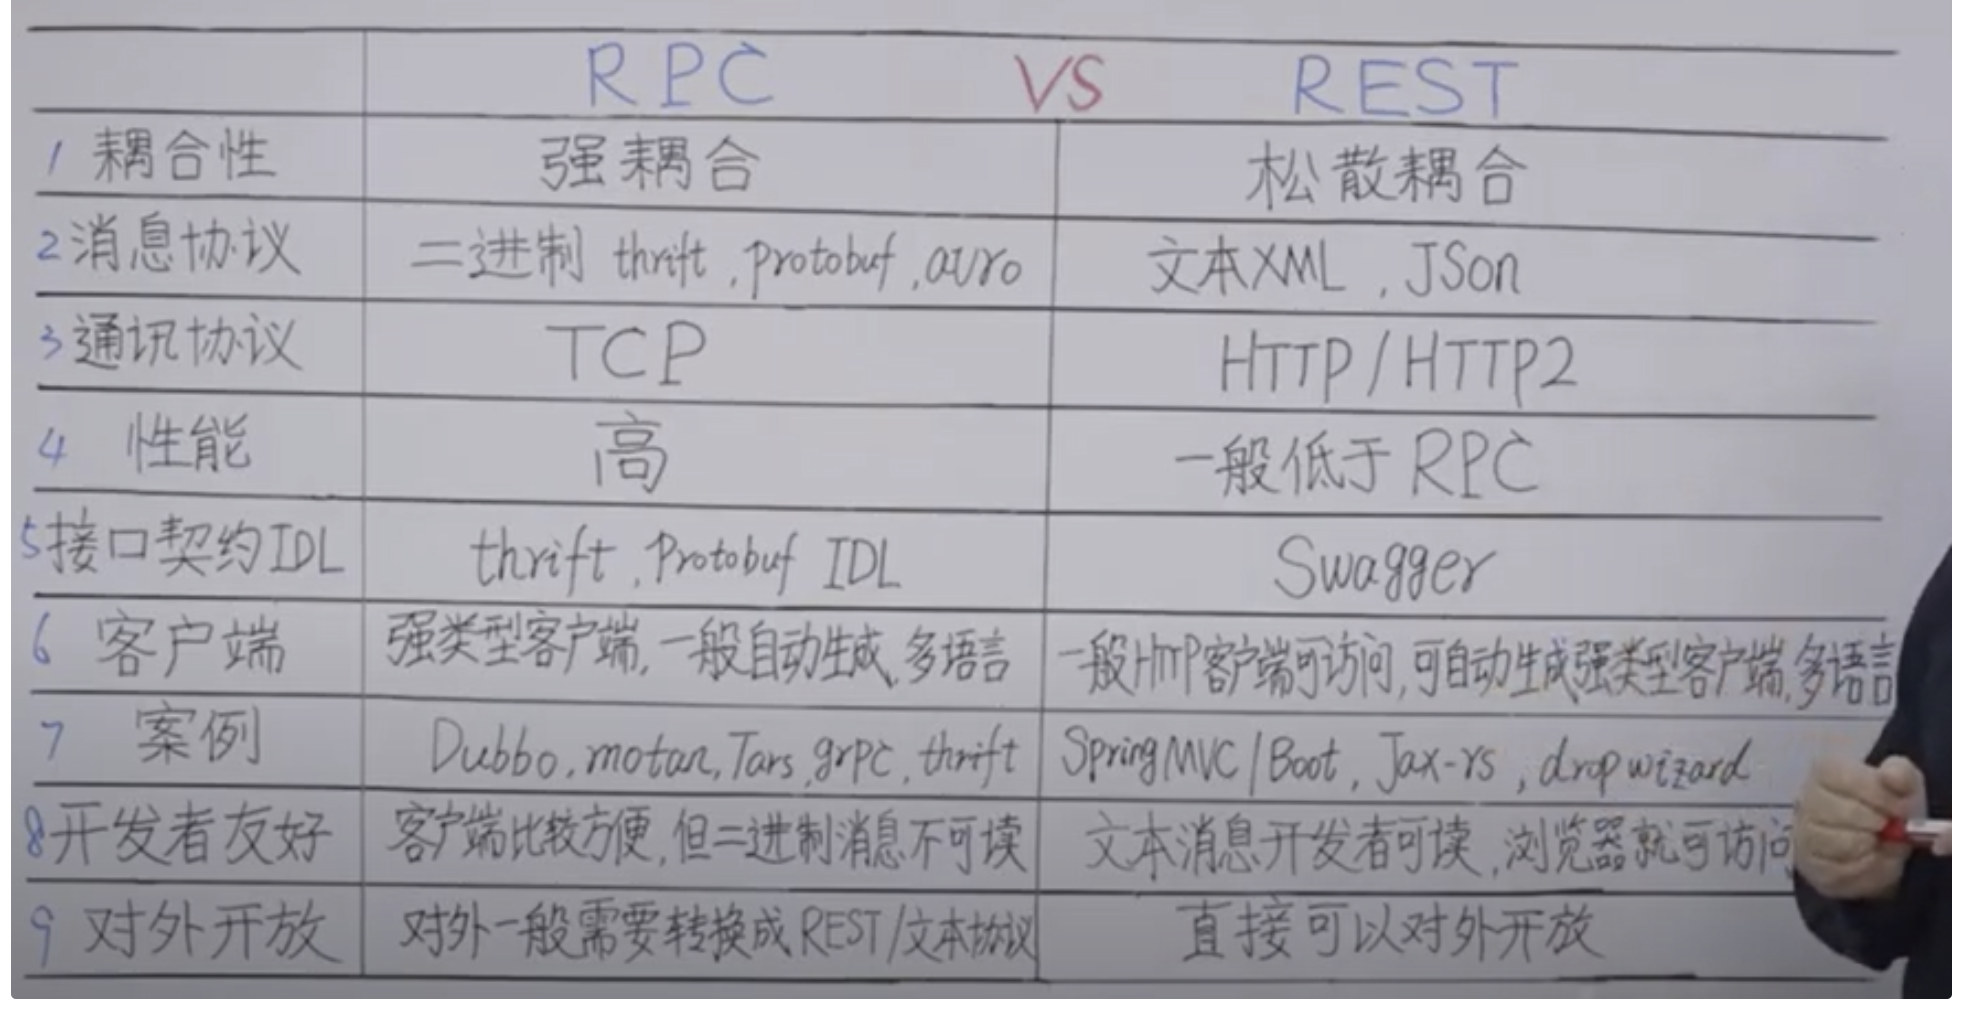 RPC VS REST
1 耦合性 强耦合 松散耦合
2 消息协议 二进制 thrift, protobuf, avro 文本XML, JSon
3 通讯协议 TCP HTTP/HTTP2
4 性能 高 一般低于RPC
5 接口契约IDL thrift, Protobuf IDL Swagger
6 客户端 强类型客户端, 一般自动生成, 多语言 一般HTTP客户端可访问, 可自动生成强类型客户端, 多语言
7 案例 Dubbo, motan, Tars, grpc, thrift SpringMVC/Boot, Jax-rs, dropwizard
8 开发者友好 客户端比较方便, 但二进制消息不可读 文本消息开发者可读, 浏览器就可访问
9 对外开放 对外一般需要转换成REST/文本协议 直接可以对外开放